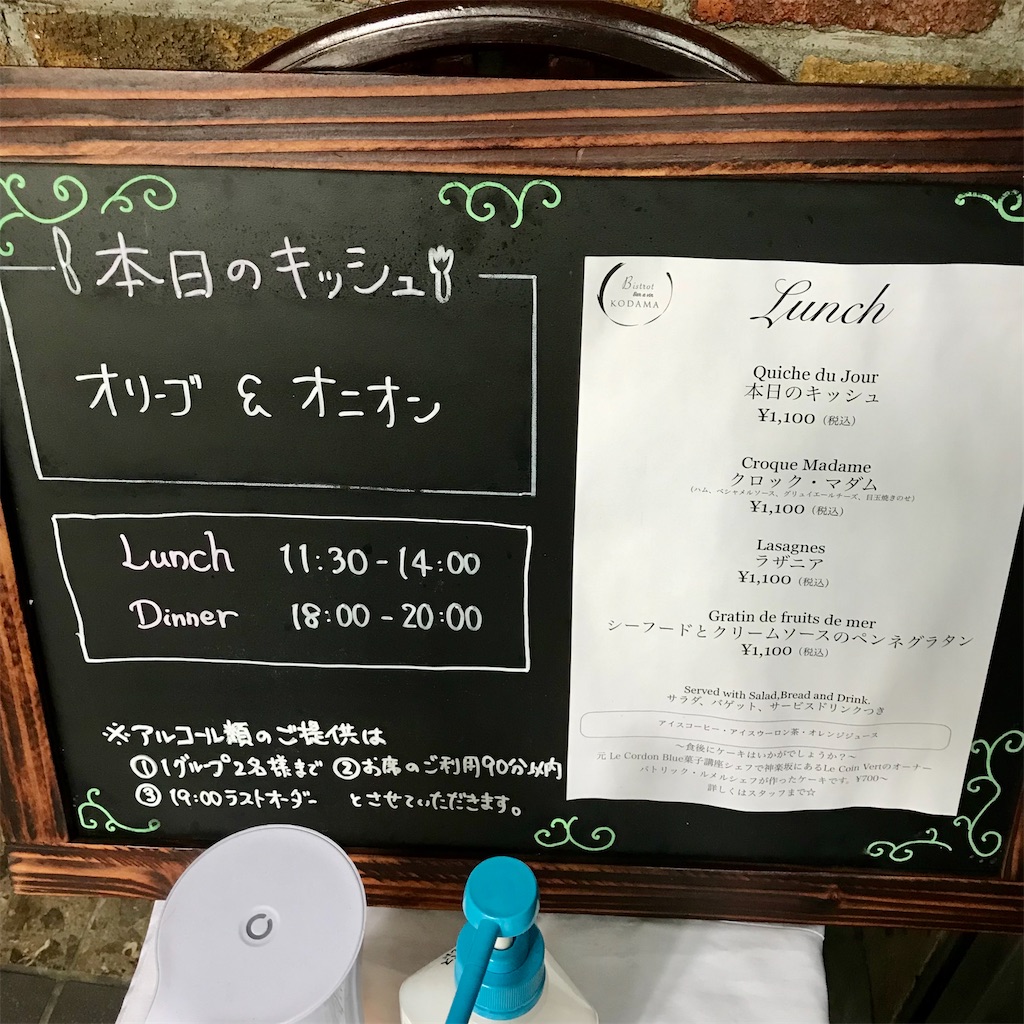 本日のキッシュ
オリーブ & オニオン
Lunch 11:30-14:00
Dinner 18:00-20:00
※アルコール類のご提供は
①1グループ2名様まで ②お席のご利用90分以内
③19:00ラストオーダー とさせていただきます。
Bistrot
KODAMA
Lunch
Quiche du Jour
本日のキッシュ
¥1,100（税込）
Croque Madame
クロック・マダム
（ハム、ベシャメルソース、グリュイエールチーズ、目玉焼きのせ）
¥1,100（税込）
Lasagnes
ラザニア
¥1,100（税込）
Gratin de fruits de mer
シーフードとクリームソースのペンネグラタン
¥1,100（税込）
Served with Salad,Bread and Drink.
サラダ、バゲット、サービスドリンクつき
アイスコーヒー・アイスウーロン茶・オレンジジュース
～食後にケーキはいかがでしょうか？～
元 Le Cordon Blue菓子講座シェフで神楽坂にあるLe Coin Vertのオーナー
パトリック・ルメルシェフが作ったケーキです。¥700～
詳しくはスタッフまで☆